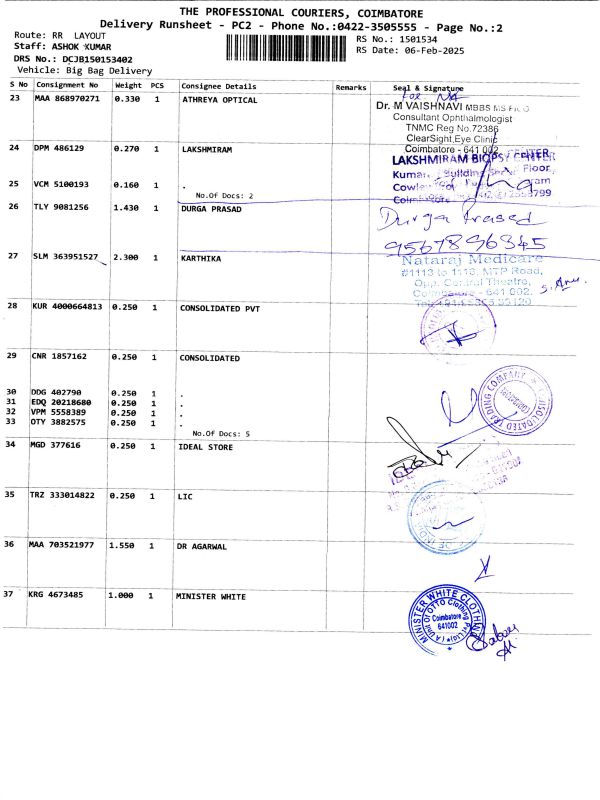 THE PROFESSIONAL COURIERS, COIMBATORE
Delivery Runsheet - PC2 - Phone No.:0422-3505555 - Page No.:2
Route: RR LAYOUT
RS No.: 1501534
Staff: ASHOK KUMAR
RS Date: 06-Feb-2025
DRS No.: DCJB150153402
Vehicle: Big Bag Delivery
S No Consignment No Weight PCS Consignee Details Remarks Seal & Signature
23 MAA 868970271 0.330 1 ATHREYA OPTICAL
Dr. M VAISHNAVI MBBS MS
Consultant Ophthalmologist
TNMC Reg No.72386
ClearSight Eye Clinic
Coimbatore - 641 002
24 DPM 486129 0.270 1 LAKSHMIRAM
LAKSHMIRAM BIOPSY CENTER
Building Floor,
25 VCM 5100193 0.160 1 .
No.Of Docs: 2
26 TLY 9081256 1.430 1 DURGA PRASAD
Durga Prasad
9567896345
27 SLM 363951527 2.300 1 KARTHIKA
Nataraj Medicare
#1113 to 1118, MTP Road,
Opp. Central Theatre,
Coimbatore - 641 002.
28 KUR 4000664813 0.250 1 CONSOLIDATED PVT
29 CNR 1857162 0.250 1 CONSOLIDATED
CONSOLIDATED TRADING COMPANY
30 DDG 402790 0.250 1 .
31 EDQ 20218680 0.250 1 .
32 VPM 5558389 0.250 1 .
33 OTY 3882575 0.250 1 .
No.Of Docs: 5
34 MGD 377616 0.250 1 IDEAL STORE
35 TRZ 333014822 0.250 1 LIC
36 MAA 703521977 1.550 1 DR AGARWAL
37 KRG 4673485 1.000 1 MINISTER WHITE
MINISTER WHITE CLOTHING
(A Unit Of OTTO Clothing Pvt Ltd)
Coimbatore
641002